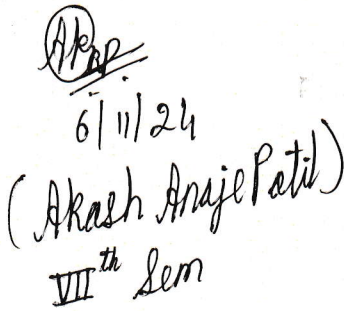 6/11/24
(Akash Anaje Patil)
VIIth Sem